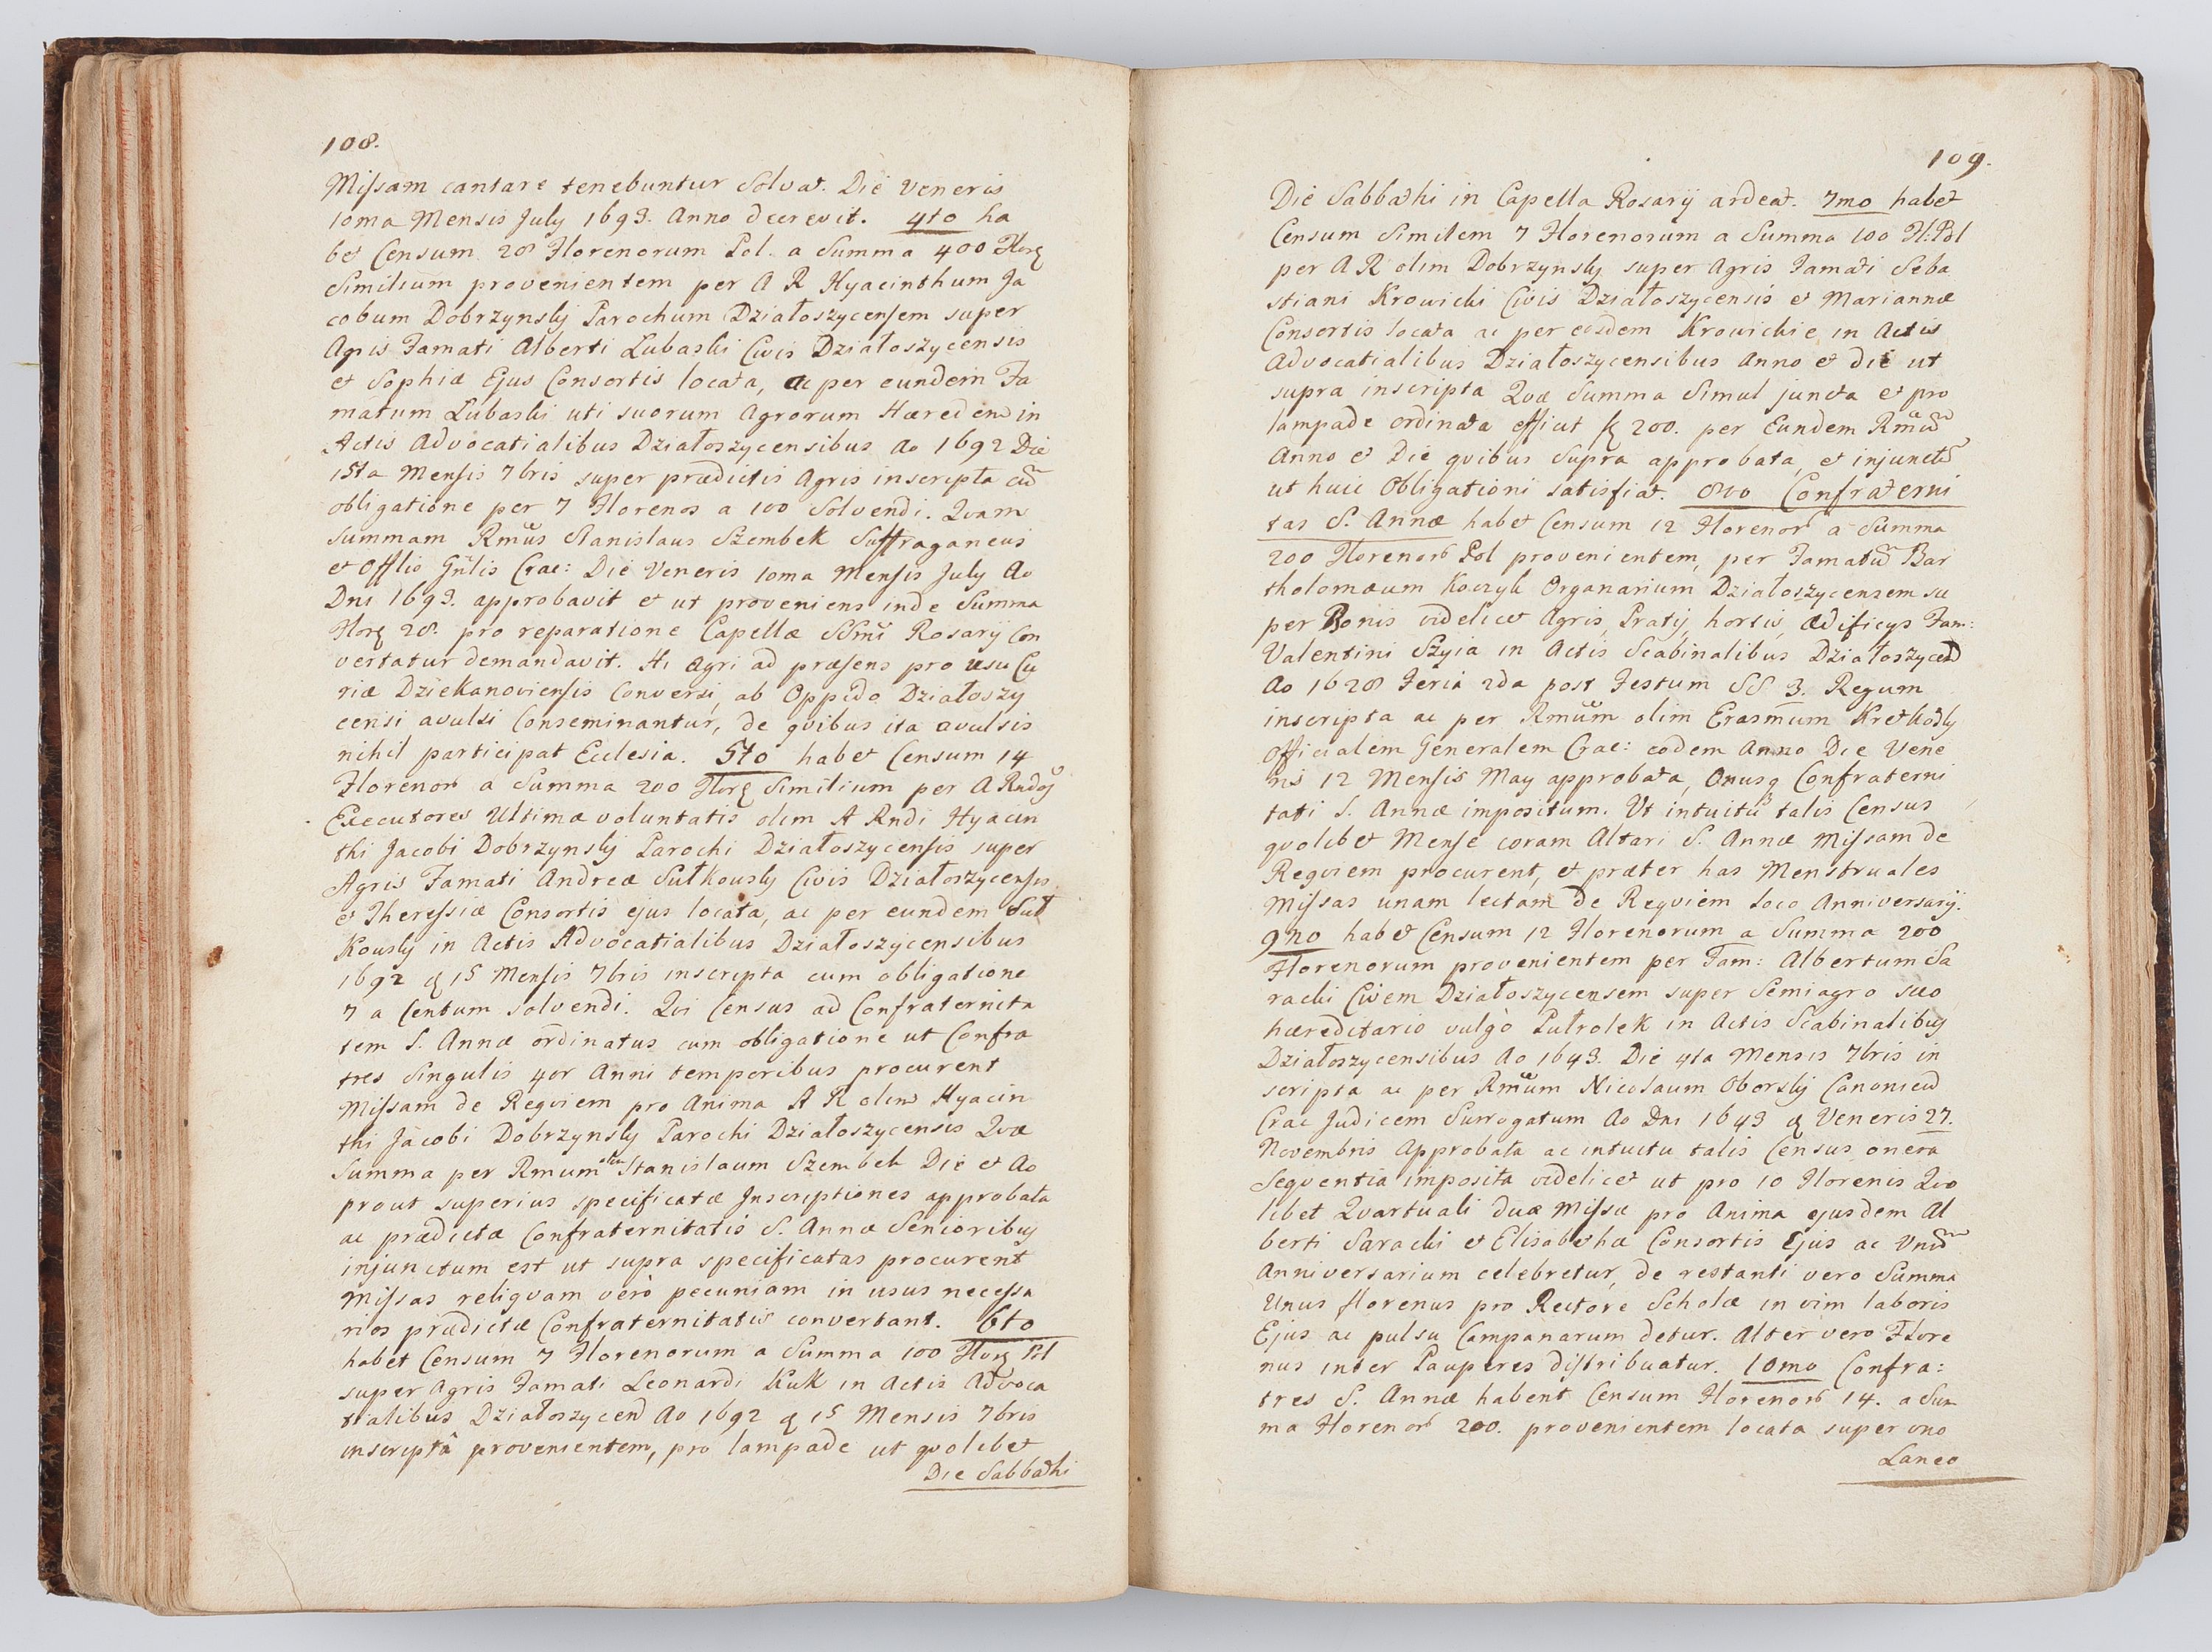 108.
Missam cantare tenebuntur Solvat. Die Veneris
10ma Mensis July 1693. Anno decrevit. 4to ha
bet Censum 28 Florenorum Pol. a Summa 400 Flor
Similium provenientem per A R Hyacinthum Ja
cobum Dobrzynsky Parochum Działoszycensem super
Agris Famati Alberti Lubaski Civis Działoszycensis
et Sophiæ Ejus Consortis locata, ac per eundem Fa
matum Lubaski uti suorum Agrorum Hæredem in
Actis Advocatialibus Działoszycensibus Ao 1692 Die
15ta Mensis 7bris super prædictis Agris inscripta cũ
obligatione per 7 Florenos a 100 Solvendi. Quam
Summam Rmus Stanislaus Szembek Suffraganeus
et Offlis Gnlis Crac: Die Veneris 10ma Mensis July Ao
Dni 1693. approbavit et ut proveniens inde Summa
Flor 28. pro reparatione Capellæ SSmi Rosarij Con
vertatur demandavit. Hi agri ad præsens pro usu Cu
riæ Dziekanoviensis Conversi, ab Oppido Działoszy
censi avulsi Conseminantur, de quibus ita avulsis
nihil participat Ecclesia. 5to habet Censum 14
Florenor a Summa 200 Flor Similium per A Rndos
Executores Ultimæ voluntatis olim A Rndi Hyacin
thi Jacobi Dobrzynsky Parochi Działoszycensis super
Agris Famati Andreæ Sułkowsky Civis Działoszycensis
et Theressiæ Consortis ejus locata, ac per eundem Suł
kowsky in Actis Advocatialibus Działoszycensibus
1692 d 15 Mensis 7bris inscripta cum obligatione
7 a Centum solvendi. Qui Census ad Confraternita
tem S. Annæ ordinatus cum obligatione ut Confra
tres Singulis 4or Anni temporibus procurent
Missam de Requiem pro Anima A R olim Hyacin
thi Jacobi Dobrzynsky Parochi Działoszycensis Quæ
Summa per Rmum olim Stanislaum Szembek Die et Ao
prout superius specificatæ Inscriptiones approbata
ac prædictæ Confraternitatis S. Annæ Senioribus
injunctum est ut supra specificatas procurent
Missas reliquam verò pecuniam in usus necessa
rios prædictæ Confraternitatis convertant. 6to
habet Censum 7 Florenorum a Summa 100 Flor Pol
super Agris Famati Leonardi Kuk in Actis Advoca
tialibus Działoszycen Ao 1692 d 15 Mensis 7bris
inscriptâ provenientem, pro lampade ut quolibet
Die Sabbathi
109.
Die Sabbathi in Capella Rosarij ardeat. 7mo habet
Censum Similem 7 Florenorum a Summa 100 Fl: Pol
per A R olim Dobrzynsky super Agris Famati Seba
stiani Krowicki Civis Działoszycensis et Mariannæ
Consortis locata ac per eosdem Krowickie in Actis
Advocatialibus Działoszycensibus Anno et die ut
supra inscripta Quæ Summa Simul juncta et pro
lampade ordinata efficit fl 200. per Eundem Rmũ
Anno et Die quibus Supra approbata, et injunctũ
ut huic Obligationi satisfiat. 8vo Confraterni
tas S. Annæ habet Censum 12 Florenor a Summa
200 Florenor Pol provenientem, per Famatũ Bar
tholomæum Koczyk Organarium Działoszycensem su
per Bonis videlicet Agris, Pratij, hortis, ædificijs Fam:
Valentini Szyia in Actis Scabinalibus Działoszycen
Ao 1628 Feria 2da post Festum SS. 3. Regum
inscripta ac per Rmum olim Erasmum Kretkosky
Officialem Generalem Crac: eodem Anno Die Vene
ris 12 Mensis May approbata, Onusq Confraterni
tati S. Annæ impositum. Ut intuitu talis Census
quolibet Mense coram Altari S. Annæ Missam de
Requiem procurent, et præter has Menstruales
Missas unam lectam de Requiem loco Anniversarij.
9no habet Censum 12 Florenorum a Summa 200
Florenorum provenientem per Fam: Albertum Sa
racki Civem Działoszycensem super Semiagro suo
hæreditario vulgò Pułrolek in Actis Scabinalibus
Działoszycensibus Ao 1643. Die 4ta Mensis 7bris in
scripta ac per Rmum Nicolaum Oborsky Canonicũ
Crac Judicem Surrogatum Ao Dni 1643 d Veneris 27.
Novembris Approbata ac intuitu talis Census onera
Sequentia imposita videlicet ut pro 10 Florenis Quo
libet Quartuali duæ Missæ pro Anima ejusdem Al
berti Saracki et Elisabethæ Consortis Ejus ac Unũ
Anniversarium celebretur, de restanti vero Summa
Unus florenus pro Rectore Scholæ in vim laboris
Ejus ac pulsu Campanarum detur. Alter vero Flore
nus inter Pauperes distribuatur. 10mo Confra:
tres S. Annæ habent Censum Florenor 14. a Sum
ma Florenor 200. provenientem locata super uno
Laneo